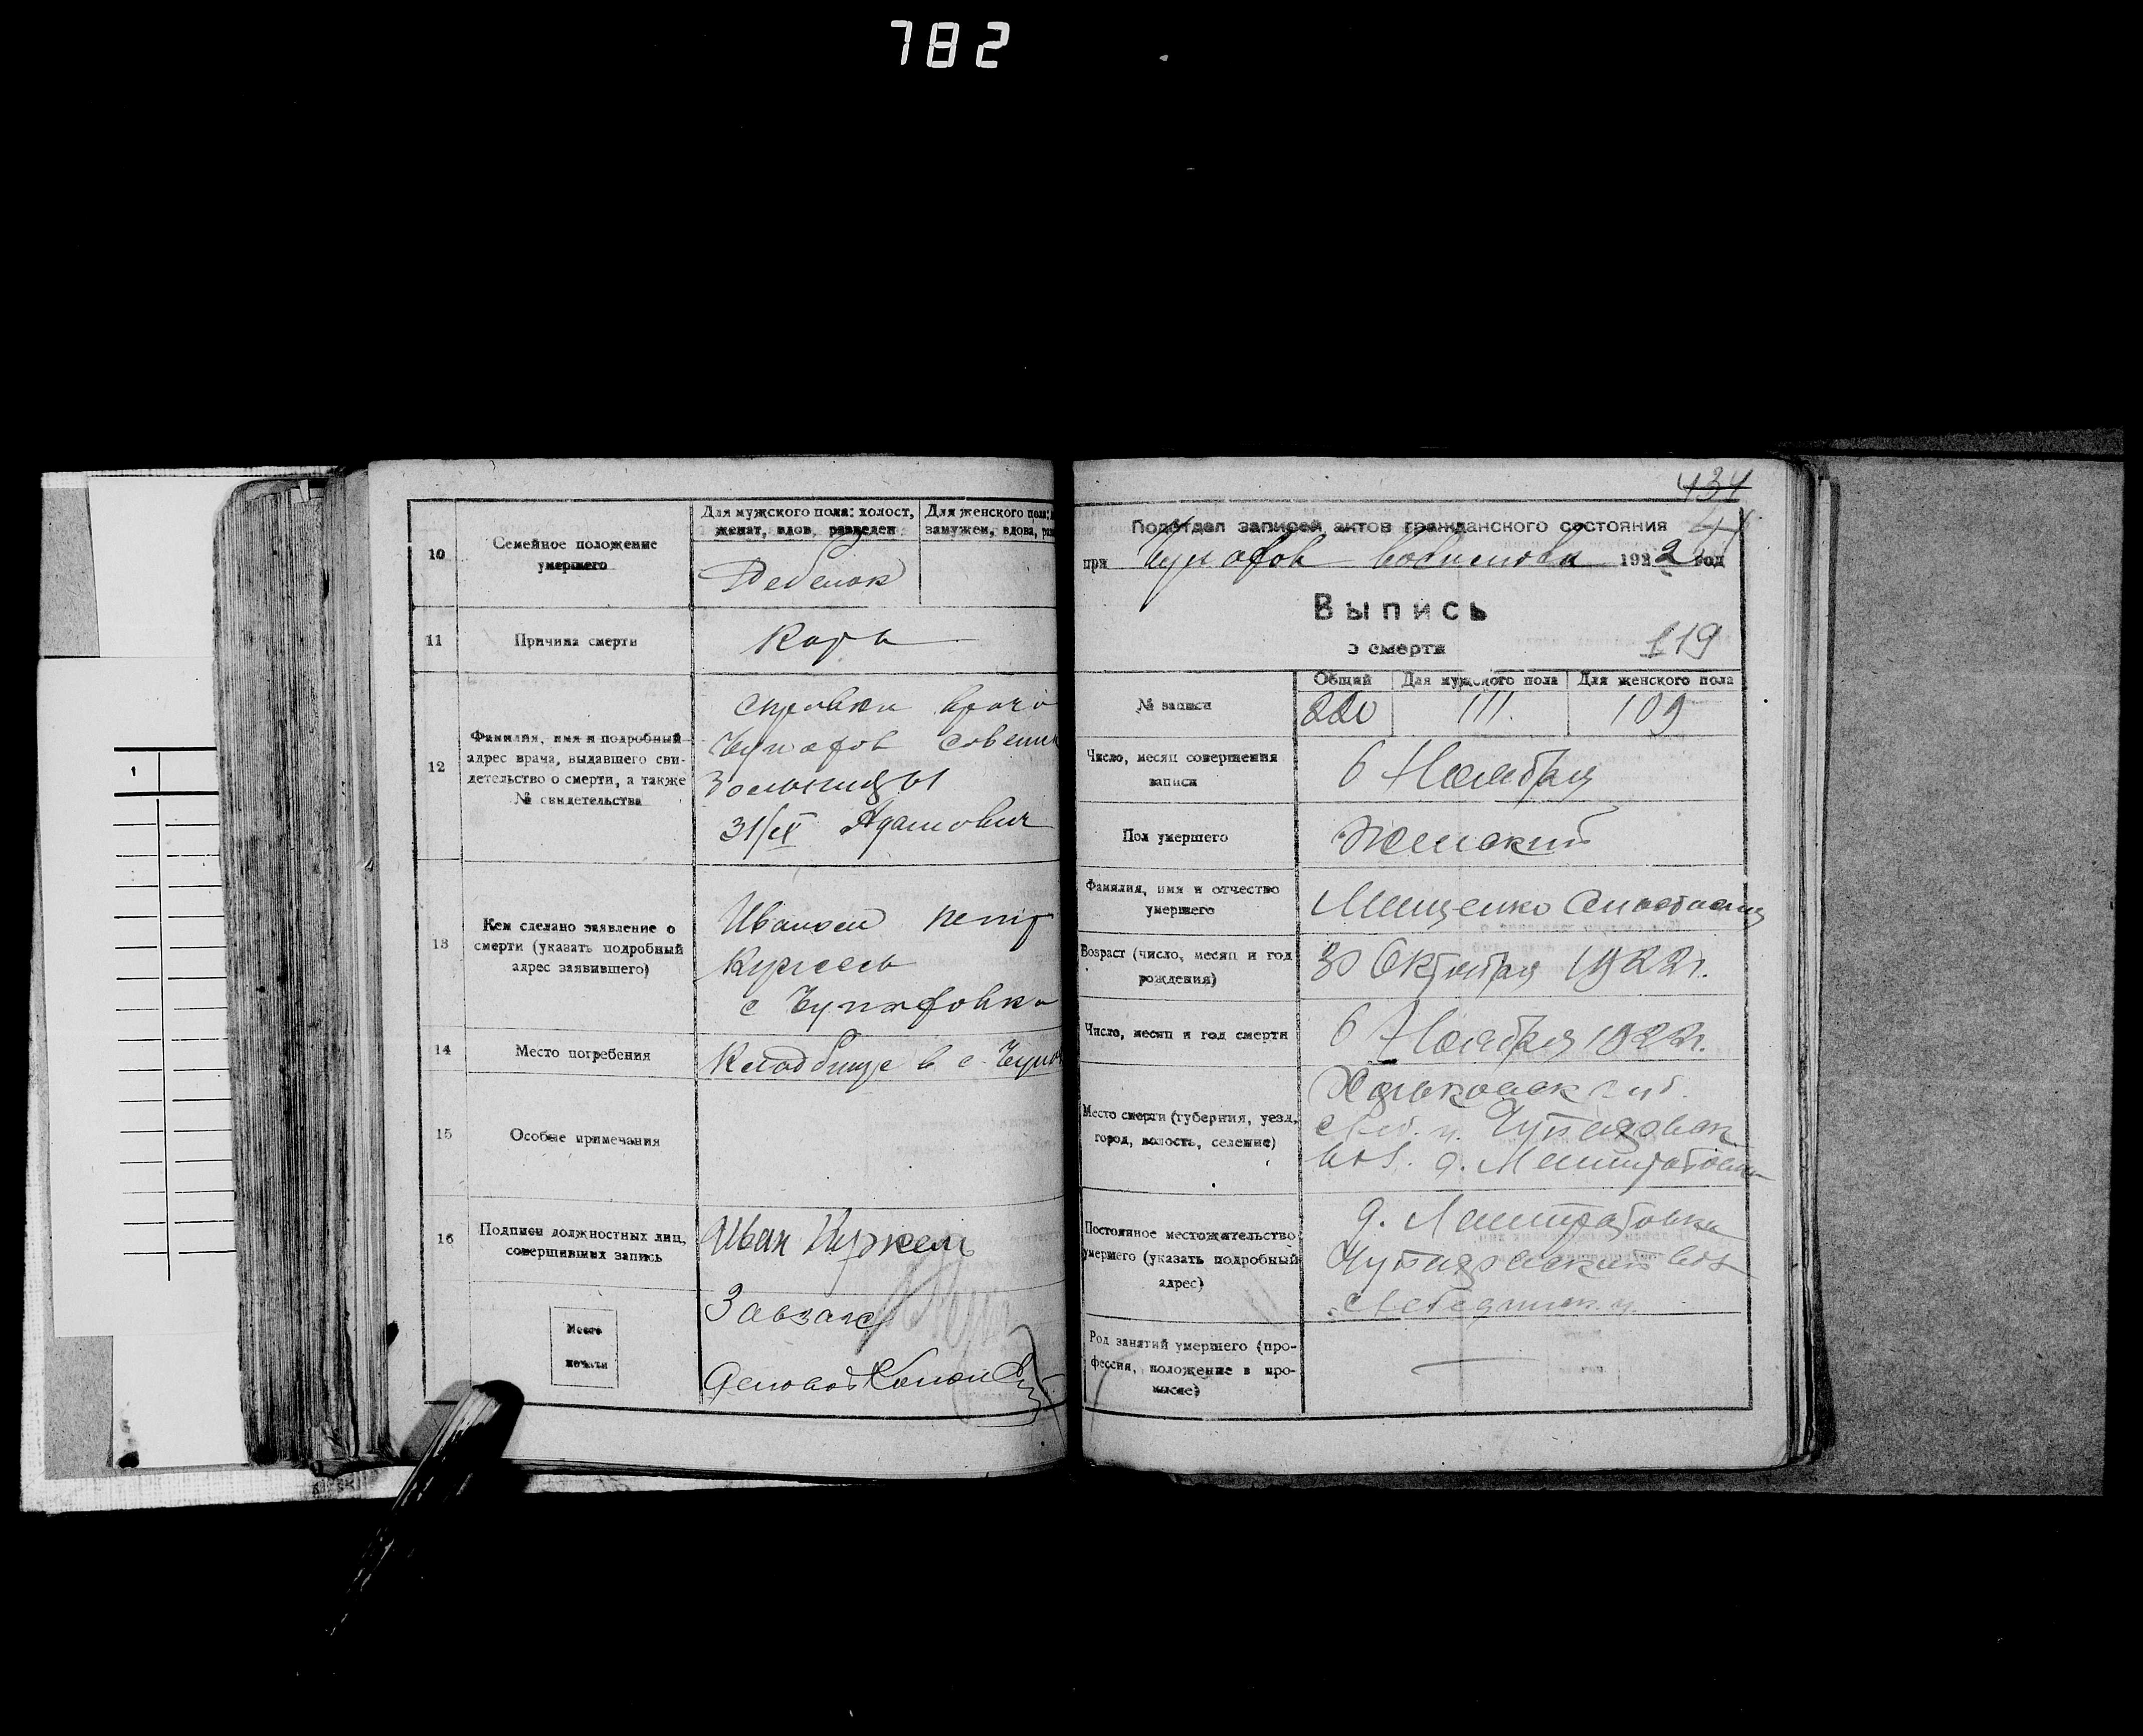 782
10
Семейное положение
умершего
Для мужского пола: холост,
женат, вдов, разведен
Для женского пола:
замужем, вдова, раз
Ребенок
11
Причина смерти
Корь
12
Фамилия, имя и подробный
адрес врача, выдавшего сви-
детельство о смерти, а также
№ свидетельства
справки врача
Чупахов совет
Больницы
31/IX Адамович
13
Кем сделано заявление о
смерти (указать подробный
адрес заявившего)
Иваном Петр
с Чупаховка
14
Место погребения
Кладбище в с. Чупа
15
Особые примечания
16
Подписи должностных лиц,
совершивших запись
Иван
Завзагс
Место
печати
434
Подотдел записей актов гражданского состояния
при Чупахов 1922 год
Выпись
о смерти
119
№ записи
Общий
Для мужского пола
Для женского пола
220
111.
109
Число, месяц совершения
записи
6 Ноября
Пол умершего
Женский
Фамилия, имя и отчество
умершего
Мищенко Анастасия
Возраст (число, месяц и год
рождения)
30 Октября 1922 г.
Число, месяц и год смерти
6 Ноября 1922 г.
Место смерти (губерния, уезд,
город, волость, селение)
Харьковск губ.
Чупаховск
вол. д.
Постоянное местожительство
умершего (указать подробный
адрес)
д.
Чупаховской вол
Лебединск. у.
Род занятий умершего (про-
фессия, положение в про-
мысле)